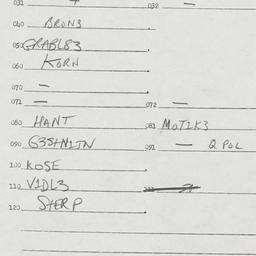 031 032 —
040 BRON3
050 GRABL83
060 KORN
070 —
071 — 072 —
080 HANT 081 MOT1K3
090 G3SHN1TN 091 — Q POL
100 KOSE
110 V1DL3
120 SHERP